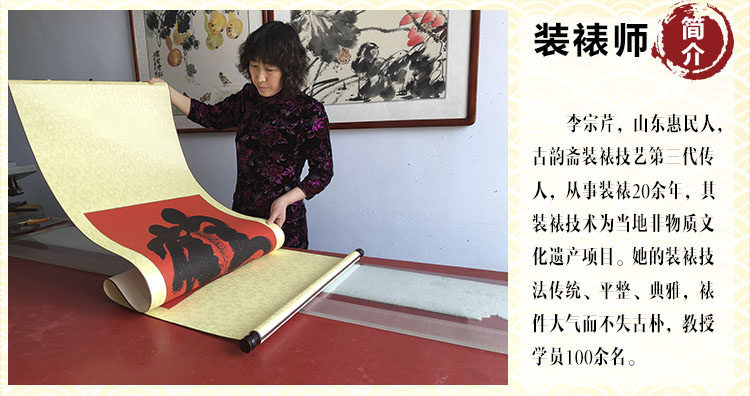 装裱师
简介
李宗芹，山东惠民人，
古韵斋装裱技艺第三代传
人，从事装裱20余年，其
装裱技术为当地非物质文
化遗产项目。她的装裱技
法传统、平整、典雅，裱
件大气而不失古朴，教授
学员100余名。